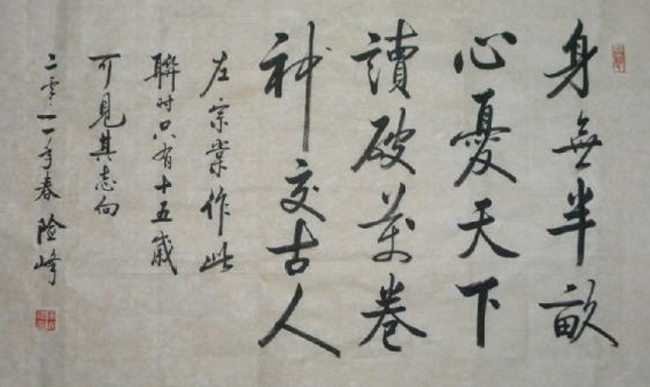 身無半畝
心憂天下
讀破萬卷
神交古人
左宗棠作此
聯时只有十五歲
可見其志向
二零一一年春 险峰